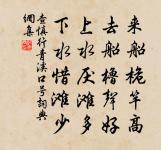 来船桅竿高
去船橹声好
上水厌滩多
下水惜滩少
查慎行青溪口号詞典
網集